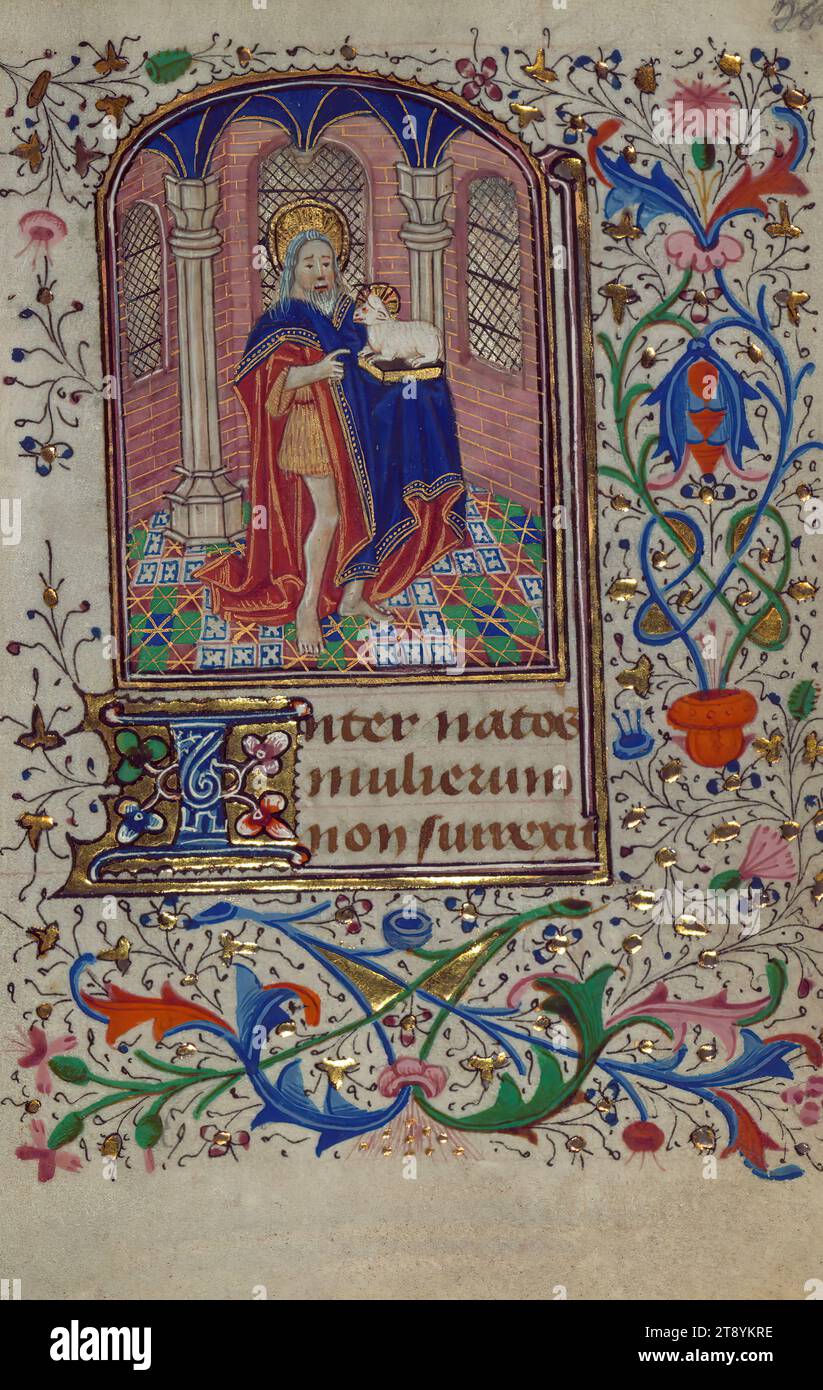 Inter natos
mulierum
non surrexit
alamy
Image ID: 2T8YKRE
www.alamy.com